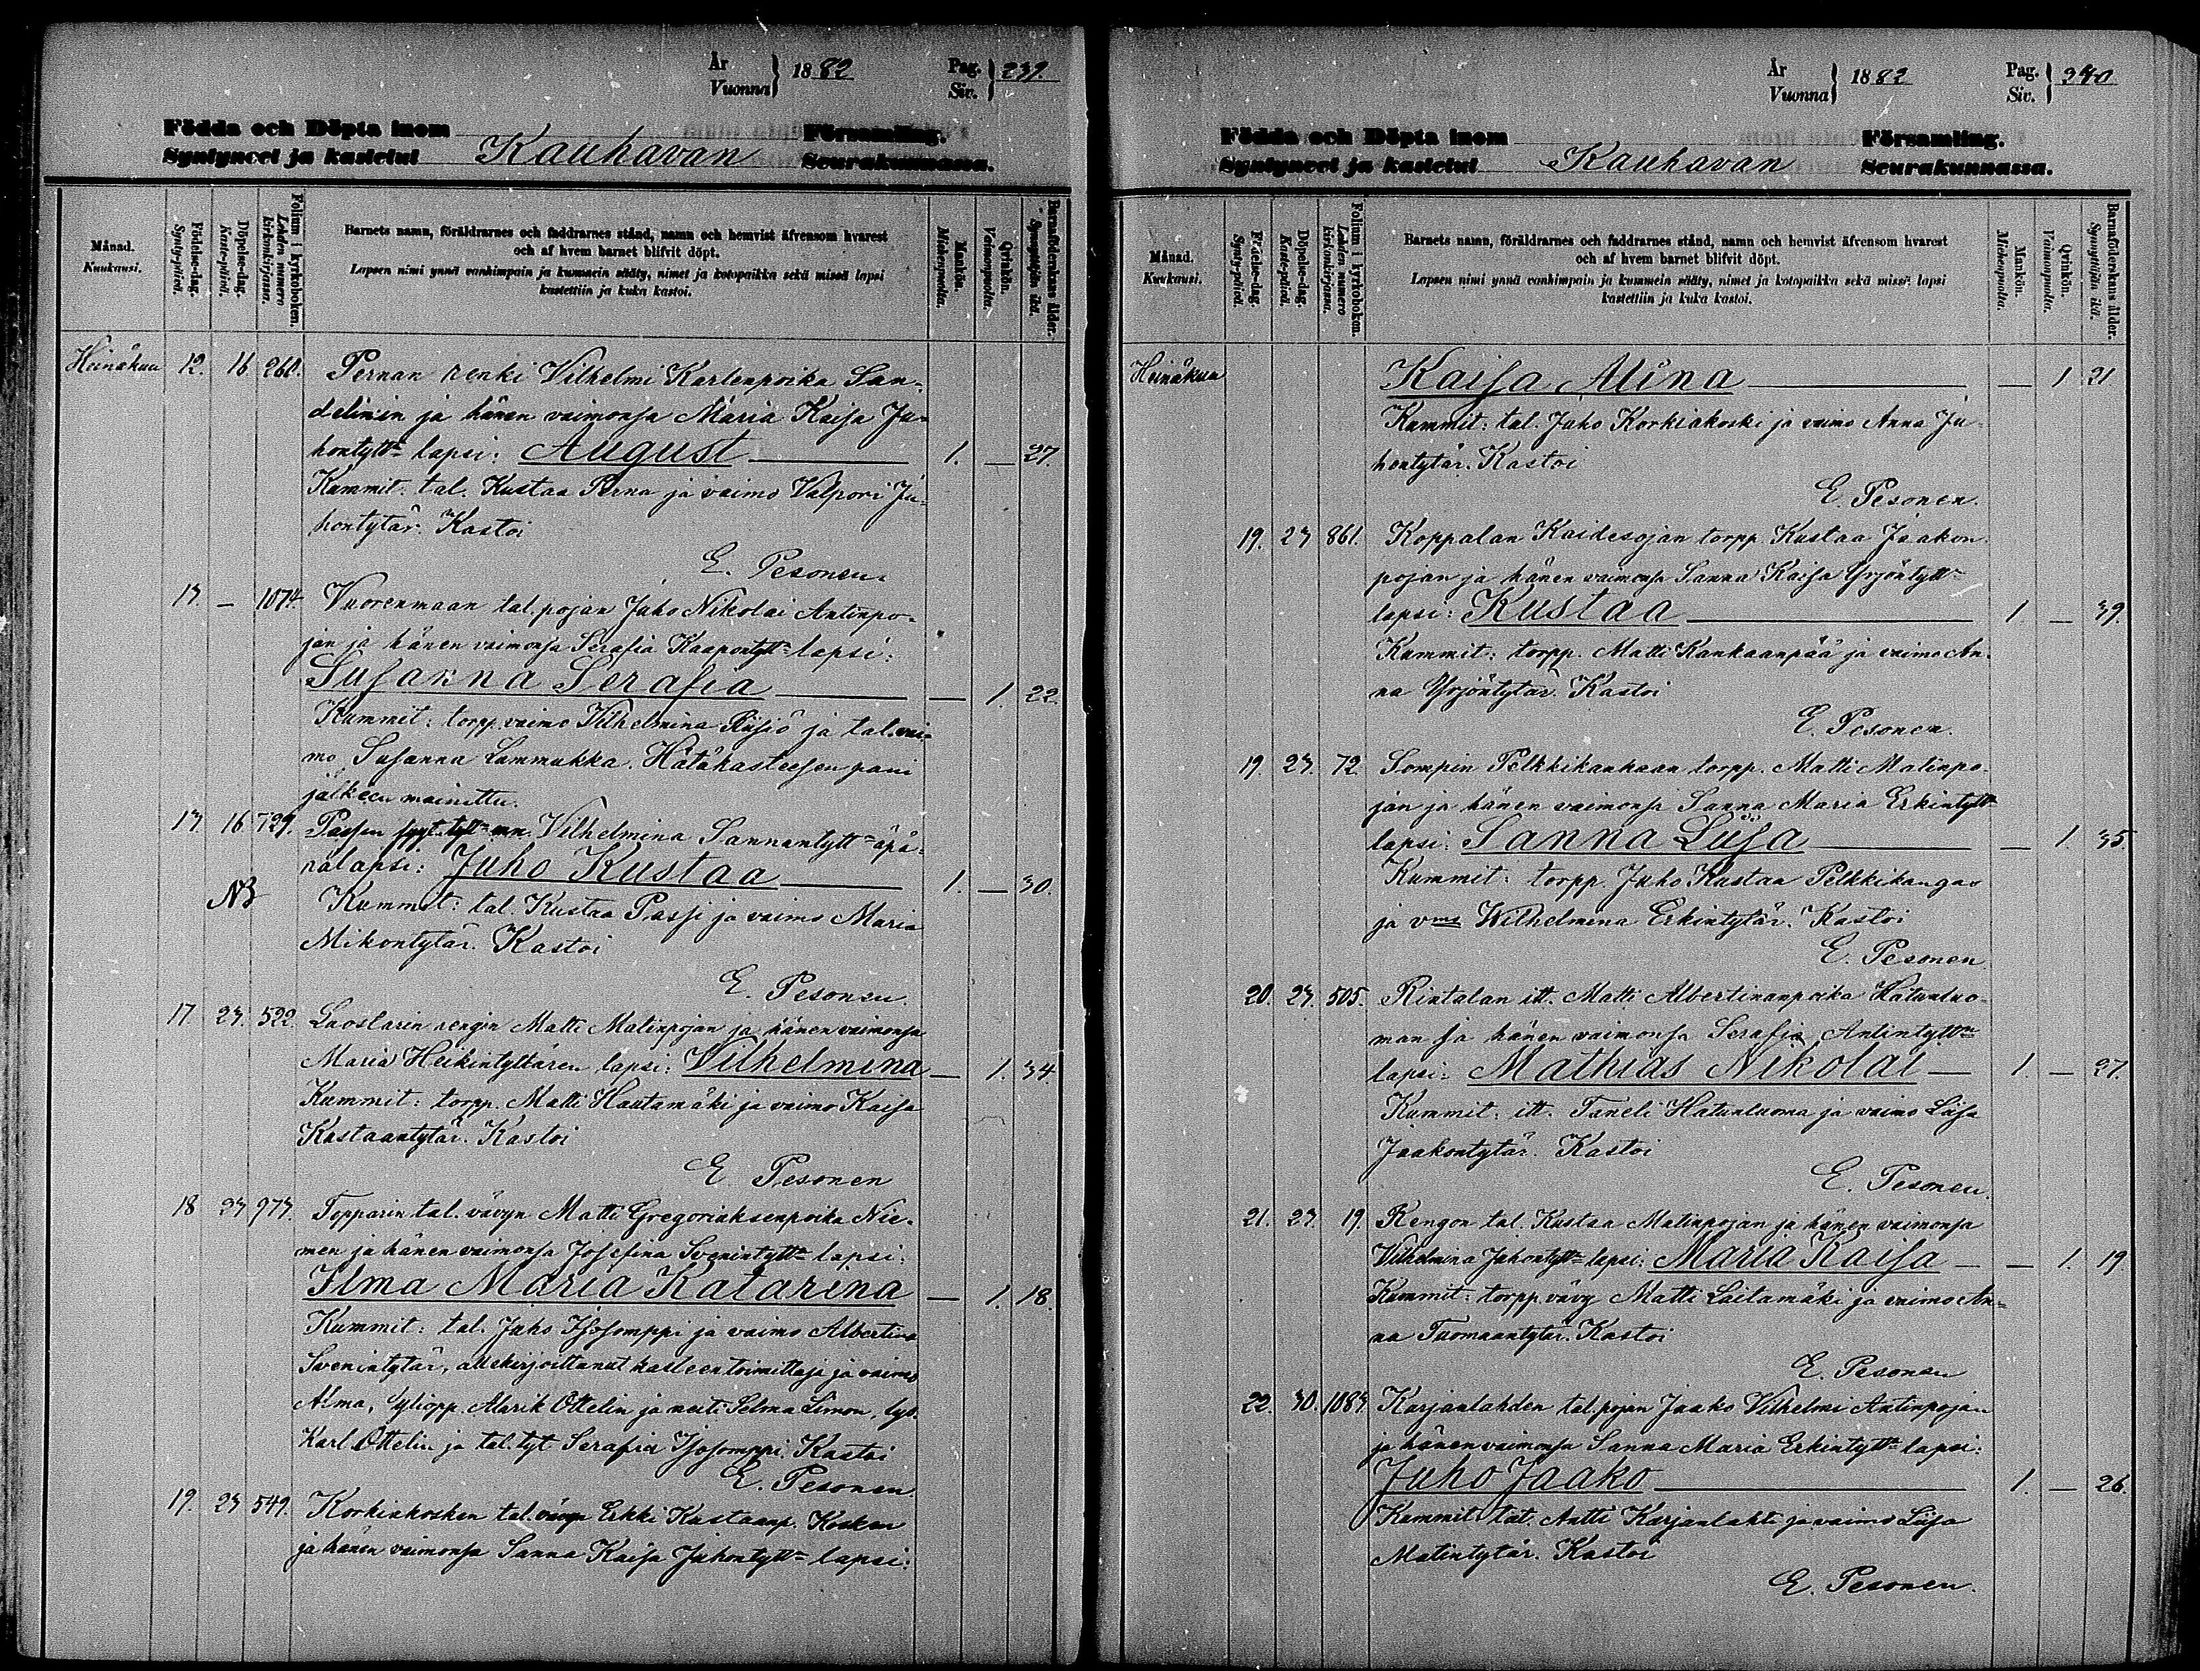 År
Vuonna
1882
Pag.
Siv.
239.
Födda och Döpta inom
Syntyneet ja kastetut
Kauhavan
Församling.
Seurakunnassa.
Månad.
Kuukausi.
Födelse-dag.
Synty-päivä.
Döpelse-dag.
Kaste-päivä.
Folium i kyrkoboken.
Lehden numero kirkonkirjassa.
Barnets namn, föräldrarnes och faddrarnes stånd, namn och hemvist äfvensom hvarest
och af hvem barnet blifvit döpt.
Lapsen nimi ynnä vanhimpain ja kummein sääty, nimet ja kotopaikka sekä missä lapsi
kastettiin ja kuka kastoi.
Mankön.
Miehenpuolta.
Qvinkön.
Vaimonpuolta.
Barnaföderskans ålder.
Synnyttäjän ikä.
Heinäkuu 12. 16 260. Pernan renki Vilhelmi Karlenpoika San-
delinin ja hänen vaimonsa Maria Kaisa Ju-
hontytt= lapsi: August 1. — 27.
Kummit: tal. Kustaa Perna ja vaimo Valpori Ju-
hontytär. Kastoi
E. Pesonen.
13. — 1074. Vuorenmaan tal. pojan Juho Nikolai Antinpo-
jan ja hänen vaimonsa Serafia Kaapontytt= lapsi:
Susanna Serafia — 1. 22.
Kummit: torpp. vaimo Vilhelmina Riihiö ja tal. vai-
mo Susanna Lammukka. Hätäkasteesen pani
jälkeen mainittu.
13 16 729. Passin Vilhelmina Sannantytt= äpä-
rälapsi: Juho Kustaa 1. — 30.
NB Kummit: tal. Kustaa Passi ja vaimo Maria
Mikontytär. Kastoi
E. Pesonen.
17. 23. 522. Laostarin rengin Matti Matinpojan ja hänen vaimonsa
Maria Heikintyttären lapsi: Vilhelmina — 1. 34.
Kummit: torpp. Matti Hautamäki ja vaimo Kaisa
Kustaantytär. Kastoi
E. Pesonen
18 23 973. Topparin tal. vävyn Matti Gregoriuksenpoika Nie-
men ja hänen vaimonsa Josefina Svenintytt= lapsi:
Ilma Maria Katarina — 1. 18.
Kummit: tal. Juho Isosomppi ja vaimo Albertina
Svenintytär, allekirjoittanut kasteen toimittaja ja vaimo
Alma, yliopp. Alarik Ottelin ja neiti Selma Limon, lys.
Karl Ottelin ja tal. tyt Serafia Isosomppi. Kastoi
E. Pesonen
19. 23 549. Korkiakosken tal. vävyn Erkki Kustaanp. Kosken
ja hänen vaimonsa Sanna Kaisa Juhontytt= lapsi:
År
Vuonna
1882
Pag.
Siv.
240
Födda och Döpta inom
Syntyneet ja kastetut
Kauhavan
Församling.
Seurakunnassa.
Månad.
Kuukausi.
Födelse-dag.
Synty-päivä.
Döpelse-dag.
Kaste-päivä.
Folium i kyrkoboken.
Lehden numero kirkonkirjassa.
Barnets namn, föräldrarnes och faddrarnes stånd, namn och hemvist äfvensom hvarest
och af hvem barnet blifvit döpt.
Lapsen nimi ynnä vanhimpain ja kummein sääty, nimet ja kotopaikka sekä missä lapsi
kastettiin ja kuka kastoi.
Mankön.
Miehenpuolta.
Qvinkön.
Vaimonpuolta.
Barnaföderskans ålder.
Synnyttäjän ikä.
Heinäkuu Kaisa Alina — 1 21
Kummit: tal. Juho Korkiakoski ja vaimo Anna Ju-
hontytär. Kastoi
E. Pesonen.
19. 23 861. Koppalan Kaidesojan torpp. Kustaa Jaakon-
pojan ja hänen vaimonsa Sanna Kaisa Yrjöntytt=
lapsi: Kustaa 1 — 39.
Kummit: torpp. Matti Kankaanpää ja vaimo An-
na Yrjöntytär. Kastoi
E. Pesonen.
19. 23. 72 Sompin Pelkkikankaan torpp. Matti Matinpo-
jan ja hänen vaimonsa Sanna Maria Erkintytt=
lapsi: Sanna Liisa — 1. 35.
Kummit: torpp. Juho Kustaa Pelkkikangas
ja vmo Wilhelmina Erkintytär. Kastoi
E. Pesonen
20. 23. 505. Rintalan itt. Matti Albertinanpoika Hatunluo-
man ja hänen vaimonsa Serafia Antintytt=
lapsi: Mathias Nikolai 1. — 27.
Kummit: itt. Taneli Hatunluoma ja vaimo Liisa
Jaakontytär. Kastoi
E. Pesonen.
21. 23. 19. Rengon tal. Kustaa Matinpojan ja hänen vaimonsa
Vilhelmina Juhontytt= lapsi: Maria Kaisa — 1. 19
Kummit: torpp. vävy Matti Laitamäki ja vaimo An-
na Tuomaantytär. Kastoi
E. Pesonen
22. 30. 1083. Karjanlahden tal. pojan Jaako Vilhelmi Antinpojan
ja hänen vaimonsa Sanna Maria Erkintytt= lapsi:
Juho Jaako 1. — 26.
Kummit tal. Antti Karjanlahti ja vaimo Liisa
Matintytär. Kastoi
E. Pesonen.